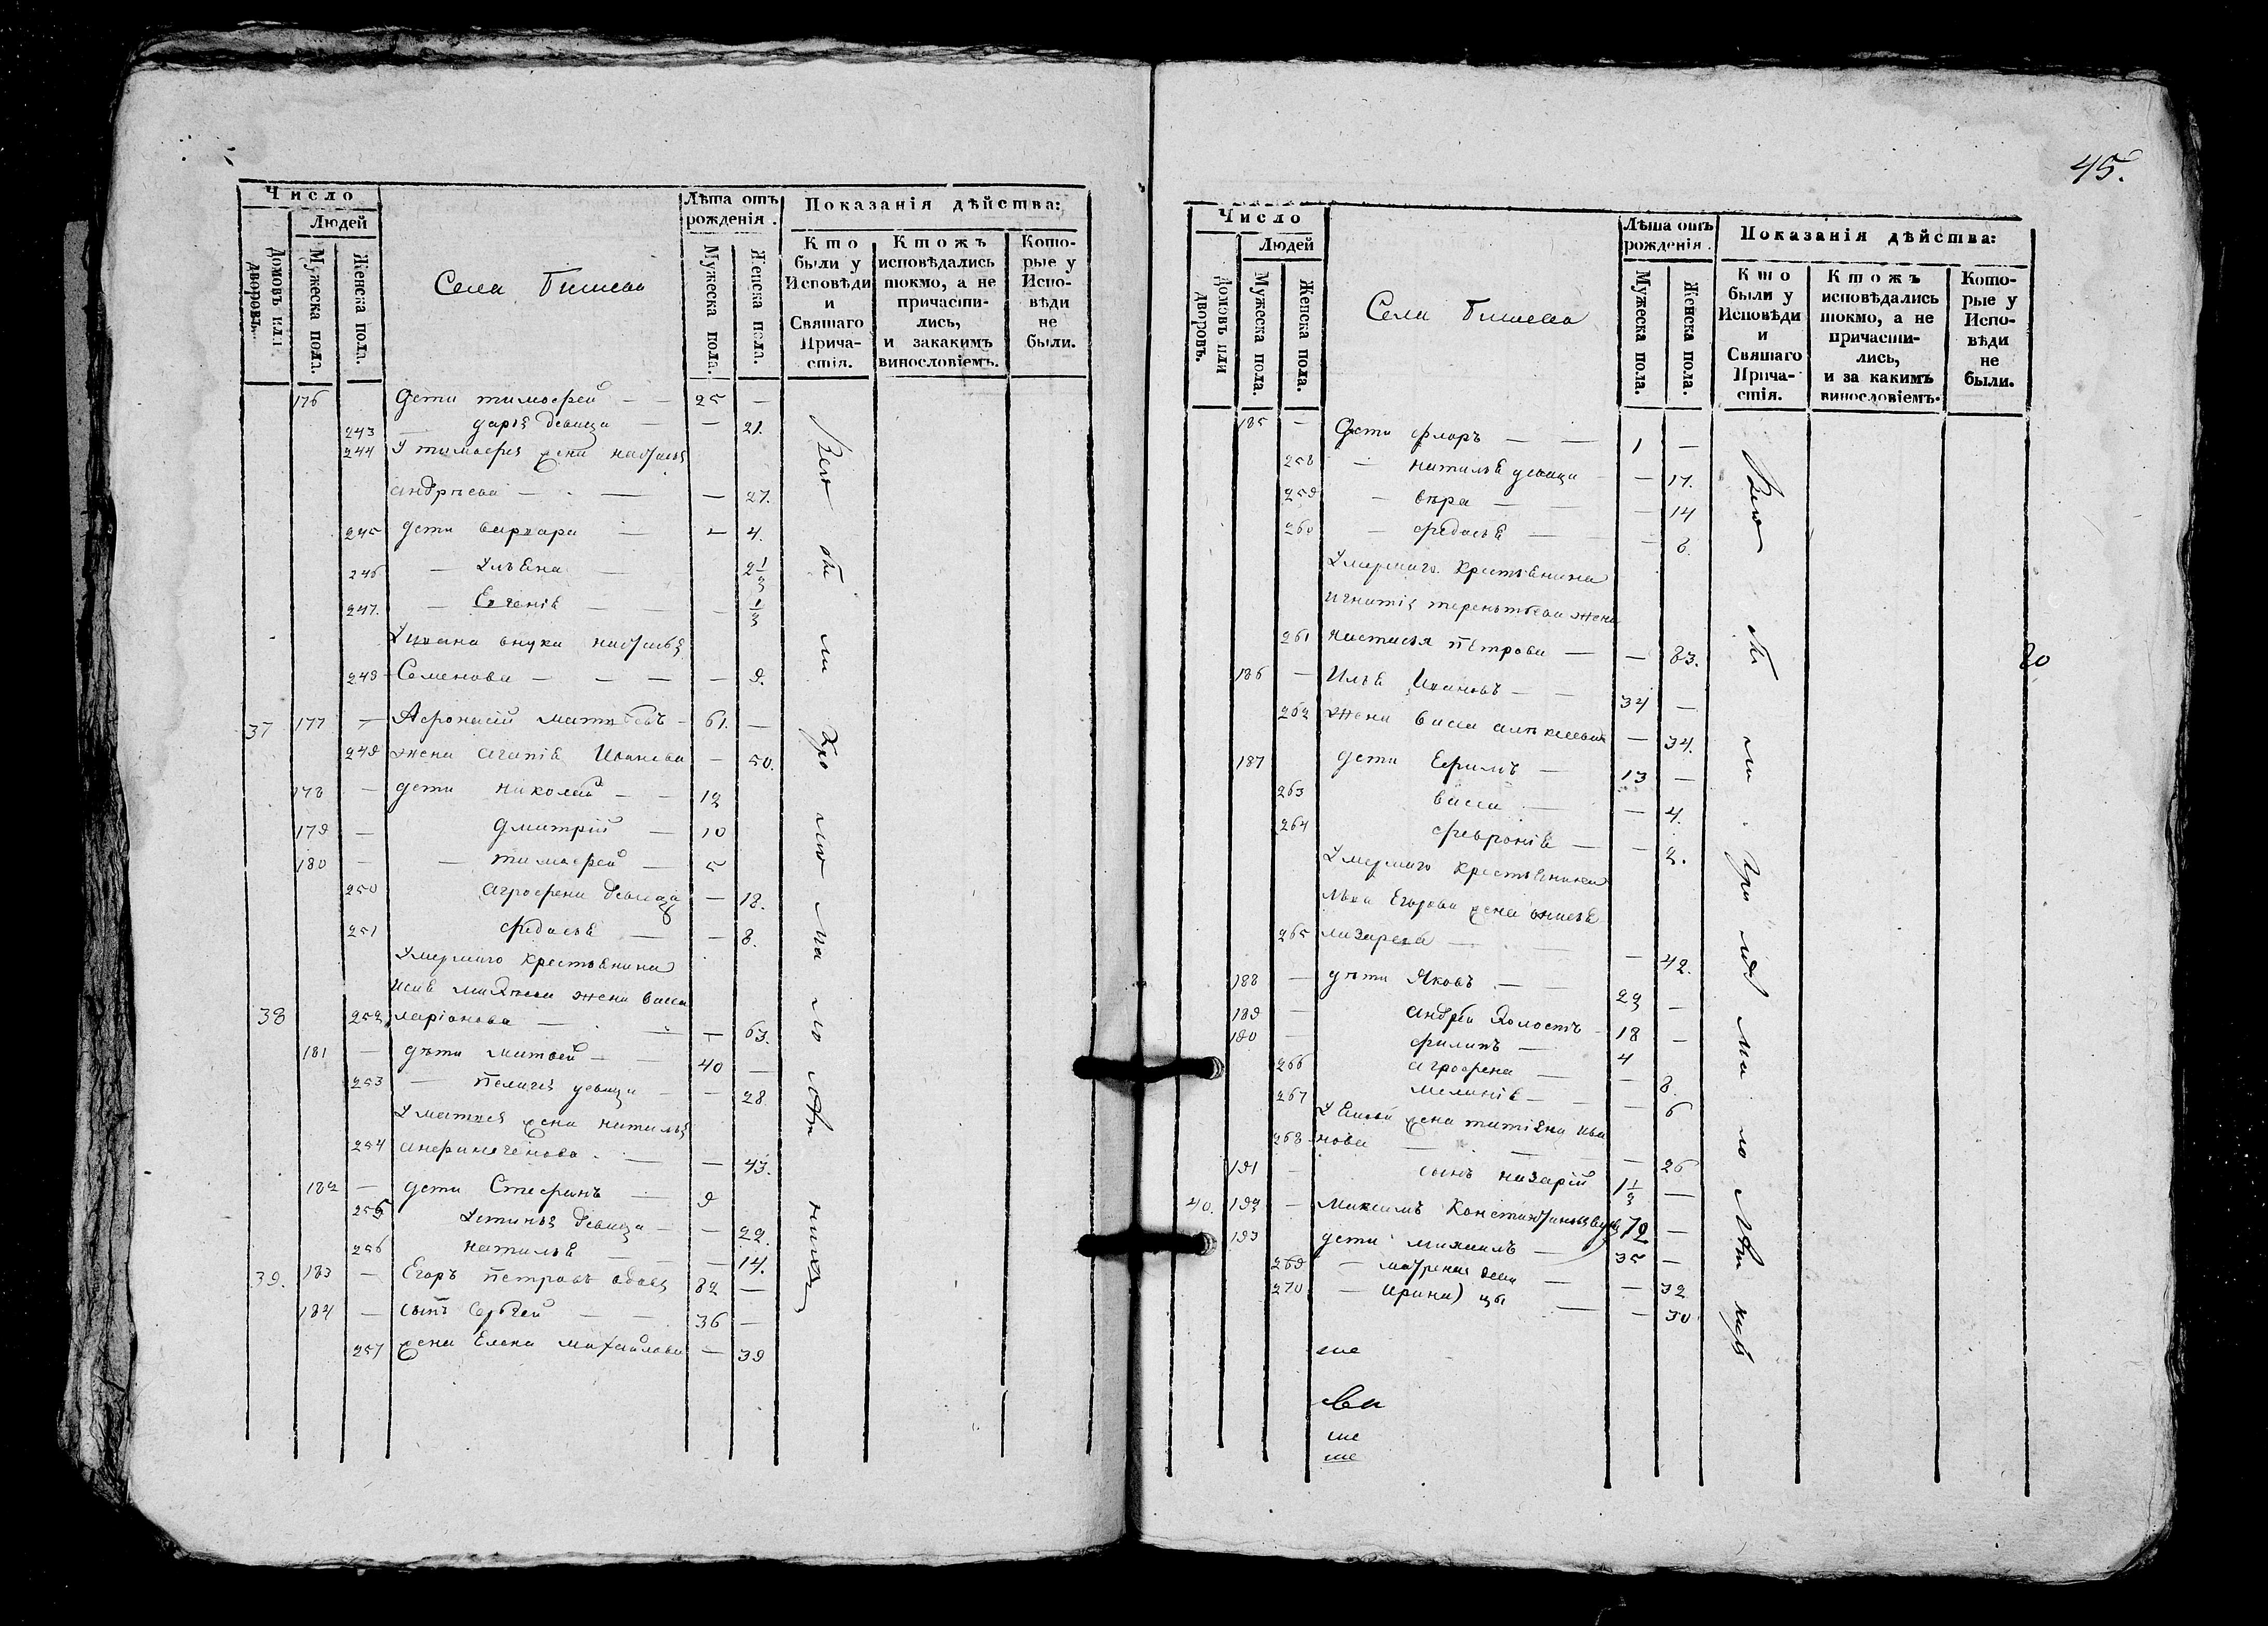 Число
Людей
Домовъ или дворовъ.
Мужеска пола.
Женска пола.
Села
Лѣта отъ рожденія.
Мужеска пола.
Женска пола.
Показанія дѣйства:
Кто были у Исповѣди и Святаго Прича-стія.
Ктожъ исповѣдались токмо, а не причасти-лись, и закакимъ винословіемъ.
Кото-рые у Испо-вѣди не были.
176 дети тимофей — — 25 —
243 дарья девица — — 21.
244 У тимофея жена наталья
андреева — — — 27.
245 дети варвара — — 4.
246 — Ульяна — 2 1/2
247. — Евгенія — — — 1/2
внука наталья
248 Семенова — — — — 9.
37 177 — Афонасій матвеевъ — 61. —
249 жена агапія Иванова — 50.
178 — дети николай — — 12
179 — дмитрій — 10
180 — — тимофей — 5
250 агрофена девица — 18.
251 федосья — — 8.
Умершаго крестьянина
жена васса
38 252 ларіонова — — — 63.
181 — дети матвей — — 40 —
253 — пелагея девица — — 28
У матвея жена наталья
254 — — 43.
182 — дети Стефанъ — 9
255 Устинья девица — — 22.
256 наталья — — 14.
39. 183 — Егоръ петровъ вдовецъ 82 —
184 — сынъ Сергей — — 36 —
257 жена Елена михайлова — 39
45.
Число
Людей
Домовъ или дворовъ.
Мужеска пола.
Женска пола.
Села
Лѣта отъ рожденія.
Мужеска пола.
Женска пола.
Показанія дѣйства:
Кто были у Исповѣди и Святаго Прича-стія.
Ктожъ исповѣдались токмо, а не причасти-лись, и за какимъ винословіемъ.
Кото-рые у Испо-вѣди не были.
185 — дети флоръ — — 1 —
258 — наталья девица — 17.
259 — вѣра — — 14
260 — федосья — — 8.
Умершаго крестьянина
игнатія терентьева жена
261 настасья петрова — — 83.
186 — Илья Ивановъ — — 34 —
262 жена васса алексеева — 34.
187 дети Ефимъ — 13 —
263 васса — — 4.
264 февронія — — 2.
Умершаго крестьянина
льва Егорова жена
265 лазарева — — 42.
188 — дети Яковъ — — 23 —
189 — андрей холостъ — 18 —
190 — филипъ — 4
266 агрофена — — 8.
267 меланія — — 6
жена татіяна ива
268 нова — — — 26
191 — сынъ назарій 1 1/2 —
40. 192 — Максимъ Константиновъ вдовецъ 72 —
193 дети михаилъ — 35 —
269 — матрена деви — — 32
270 — ирина) цы — — 30